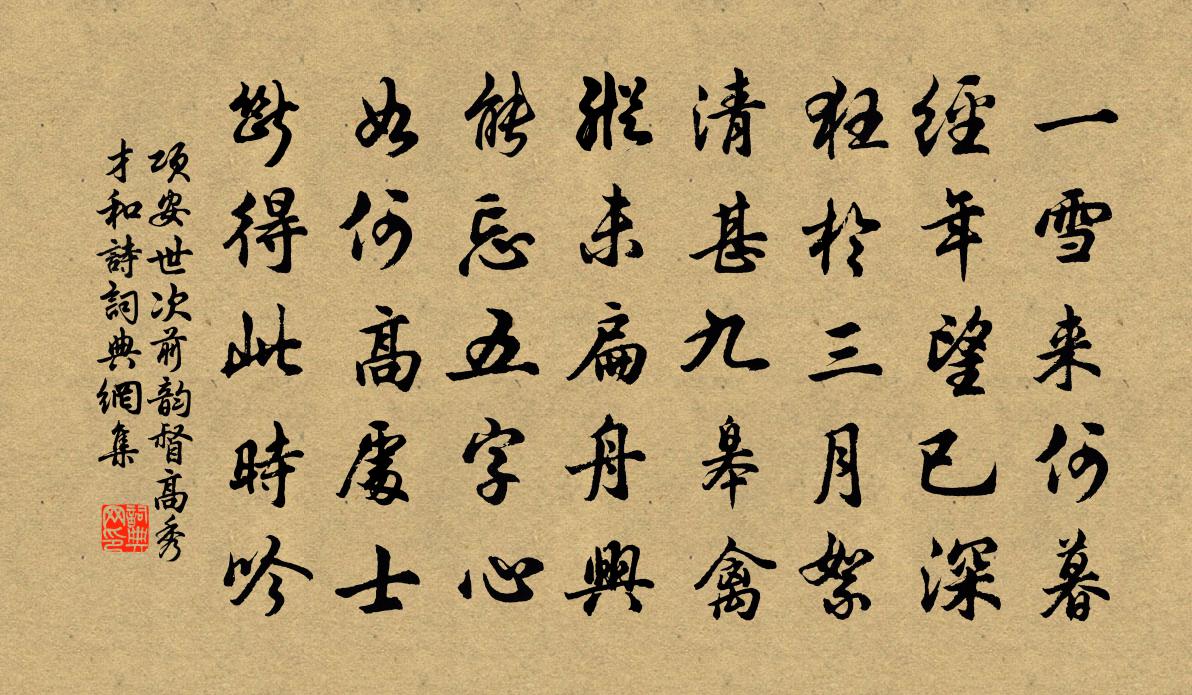 一雪来何暮
經年望已深
狂於三月絮
清甚九皋禽
縱未扁舟興
能忘五字心
如何高處士
斷得此時吟
项安世次前韵督高秀
才和詩詞典網集
詞典网印